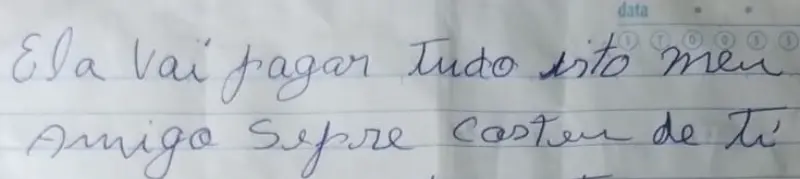 data
Ela vai pagar tudo isto meu
Amigo Sepre Costeu de ti